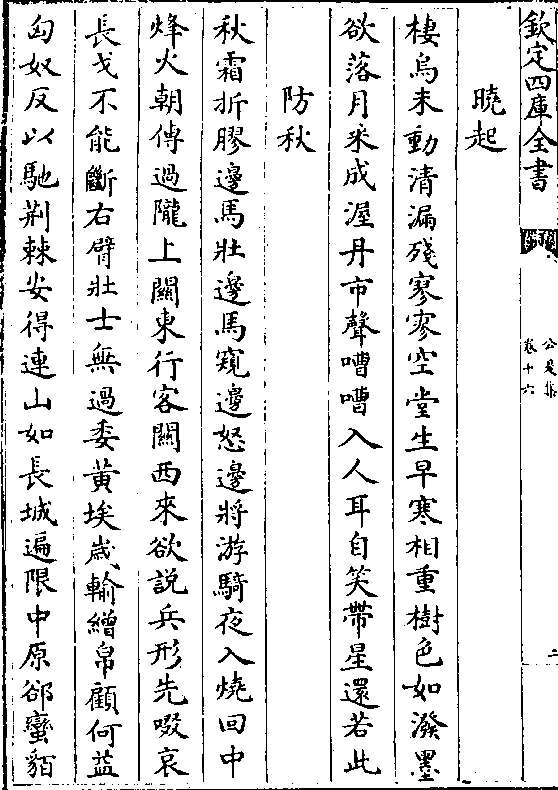 欽定四庫全書
公是集
卷十六
二
曉起
棲烏未動清漏殘寥寥空堂生早寒相重樹色如潑墨
欲落月采成渥丹市聲嘈嘈入人耳自笑帶星還若此
防秋
秋霜折膠邊馬壯邊馬窺邊怒邊將游騎夜入燒回中
烽火朝傳過隴上關東行客關西來欲説兵形先啜哀
長戈不能斷右臂壯士無過委黄埃歲輸繒帛顧何益
匈奴反以馳荆棘安得連山如長城遍限中原郤蠻貊